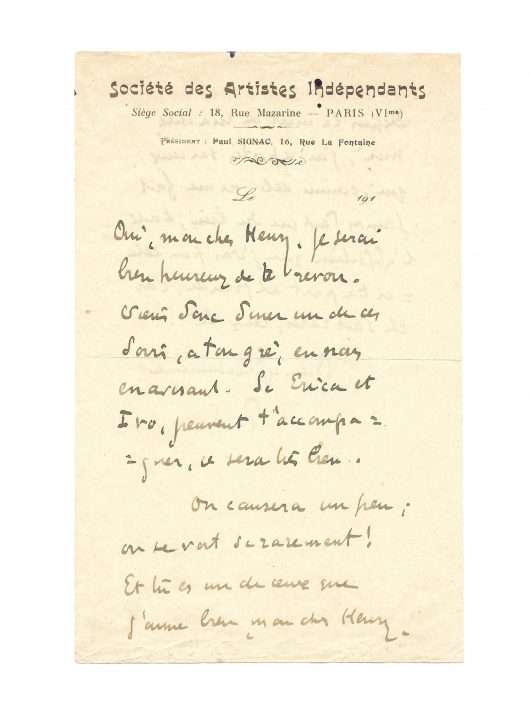 Société des Artistes Indépendants
Siège Social : 18, Rue Mazarine — PARIS (VIme)
PRÉSIDENT : Paul SIGNAC, 16, Rue La Fontaine
Le 191
Oui, mon cher Henry, je serai
bien heureux de te revoir.
Viens donc diner un de ces
soirs, à ton gré, en nous
en avisant. Si Erica et
Ivo, peuvent t'accompa =
= gner, ce sera très bien.
On causera un peu ;
on se voit si rarement !
Et tu es un de ceux que
j'aime bien mon cher Henry.